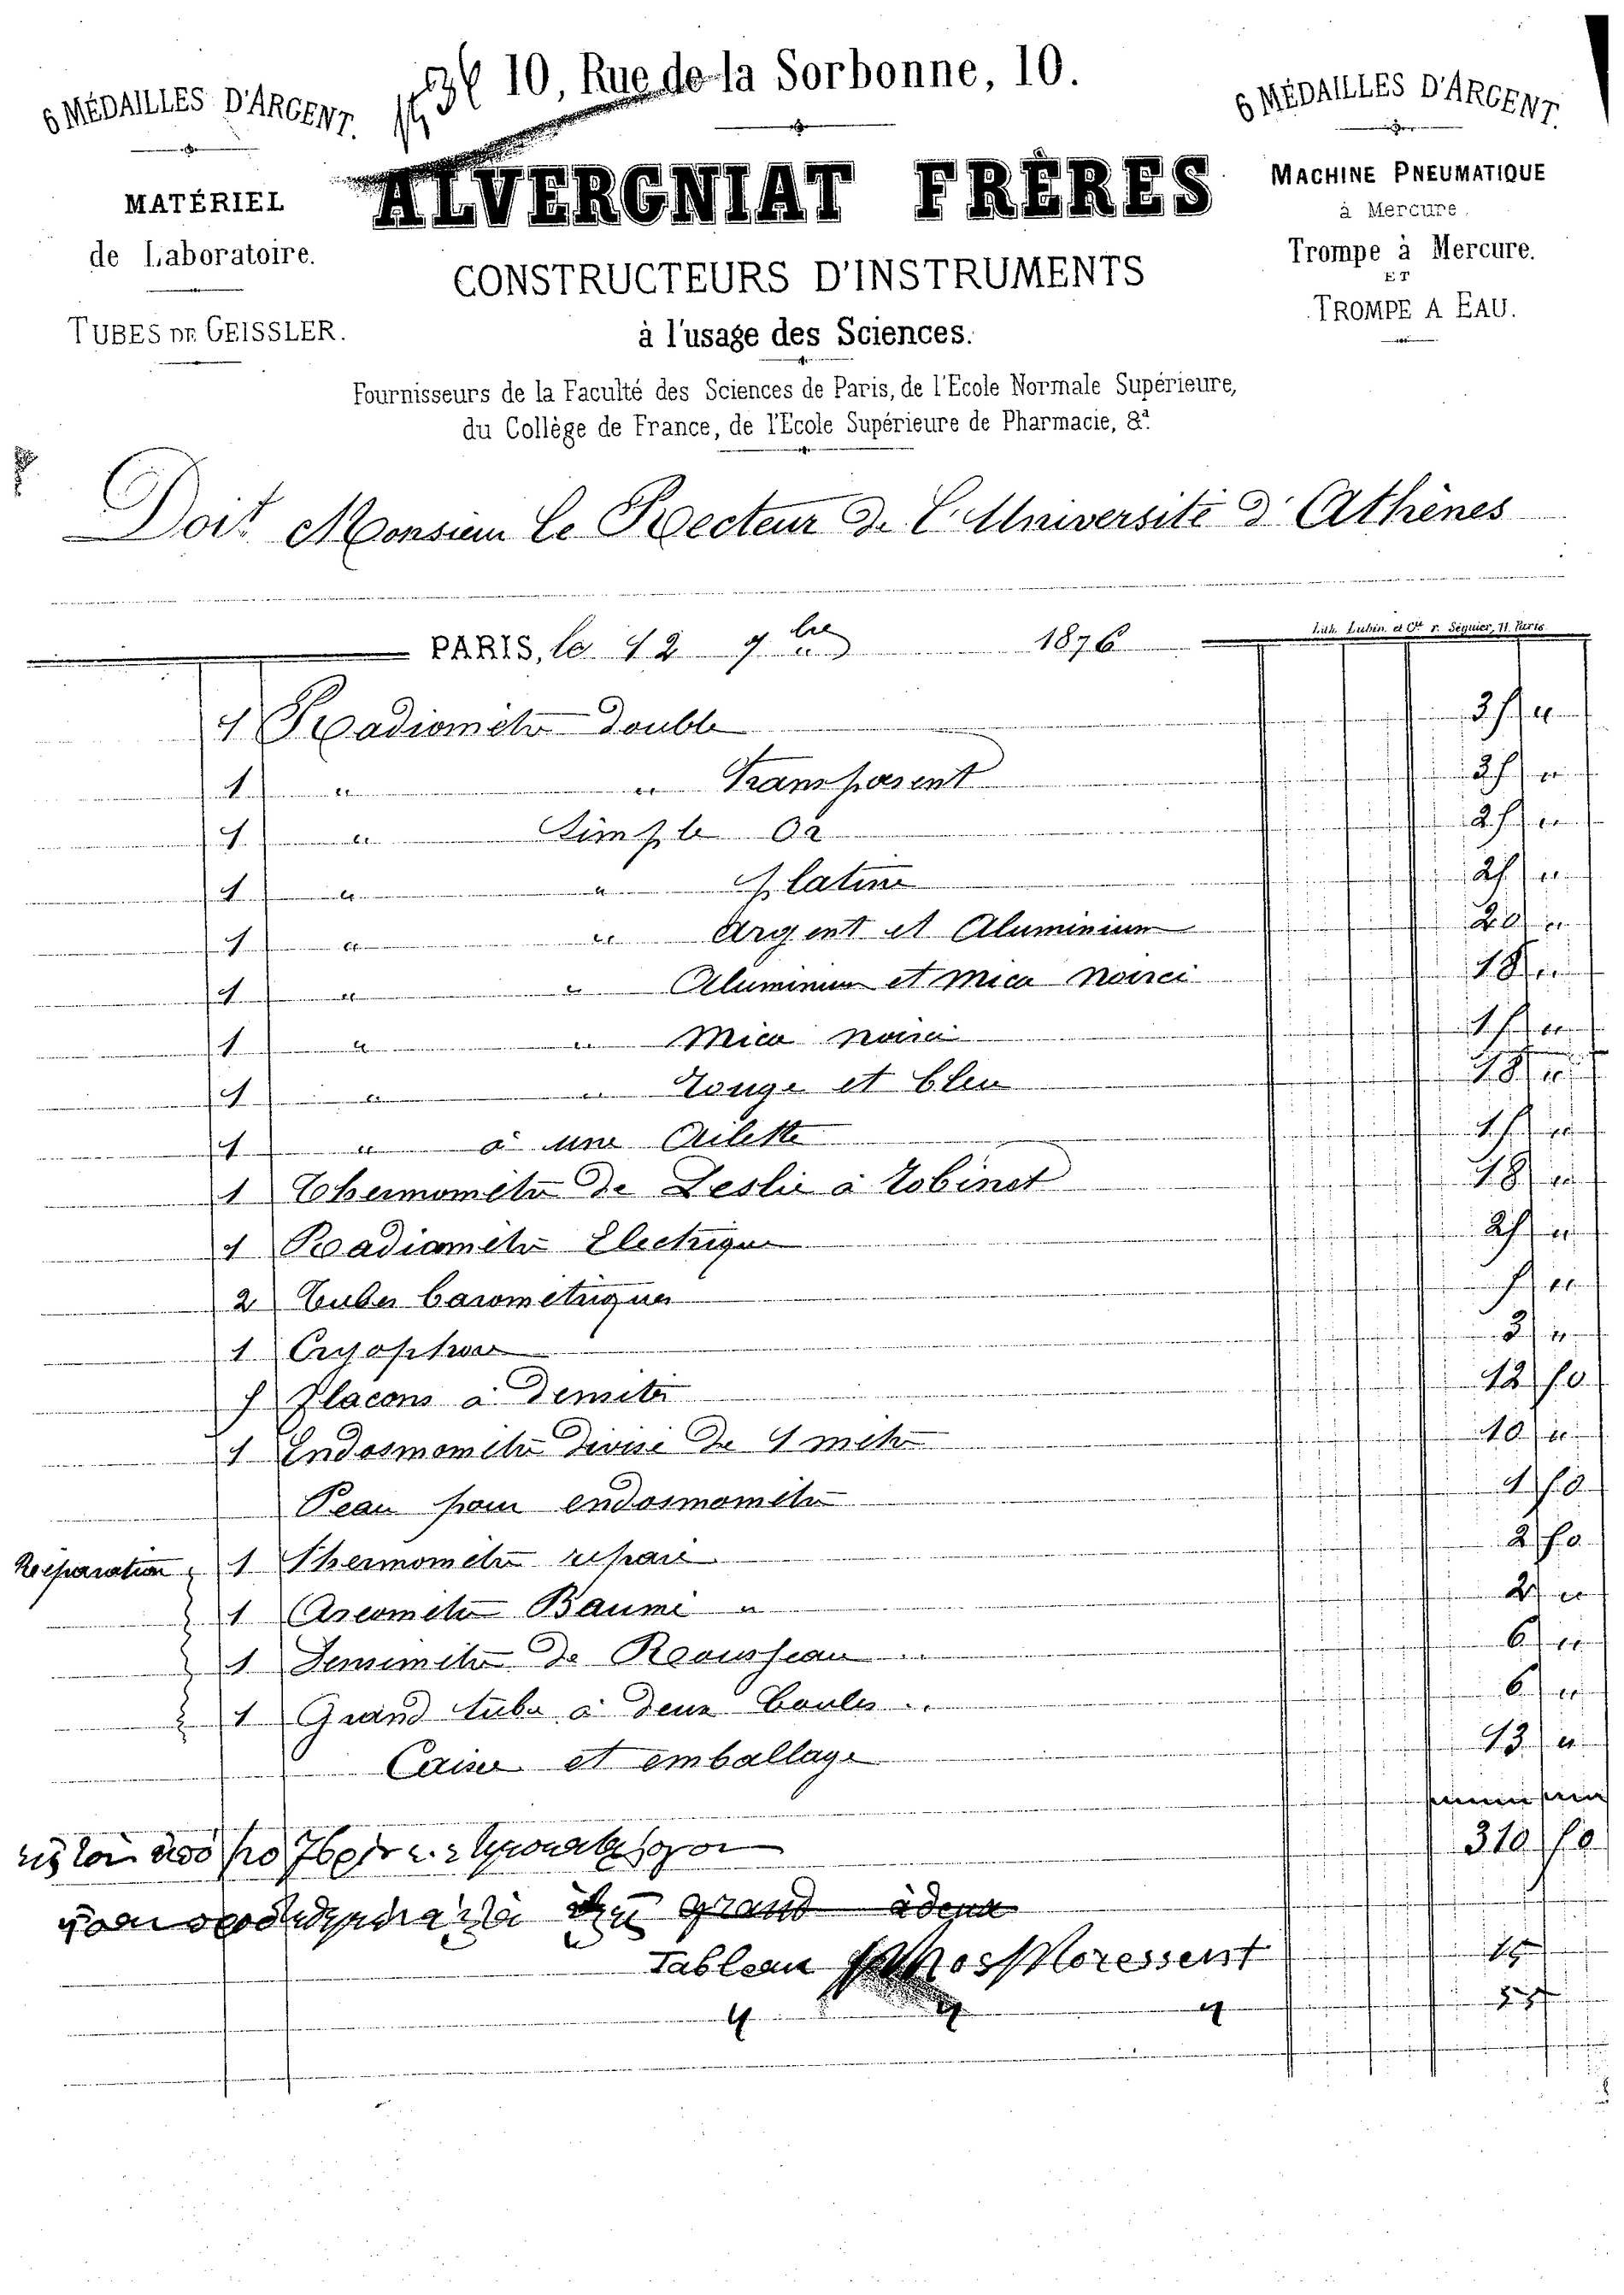 1536 10, Rue de la Sorbonne, 10.
6 MÉDAILLES D'ARGENT.
MATÉRIEL
de Laboratoire.
TUBES DE GEISSLER.
ALVERGNIAT FRÈRES
CONSTRUCTEURS D'INSTRUMENTS
à l'usage des Sciences.
Fournisseurs de la Faculté des Sciences de Paris, de l'Ecole Normale Supérieure,
du Collège de France, de l'Ecole Supérieure de Pharmacie, &ª
6 MÉDAILLES D'ARGENT.
MACHINE PNEUMATIQUE
à Mercure,
Trompe à Mercure.
ET
TROMPE A EAU.
Doit Monsieur le Recteur de l'Université d'Athènes
Lith. Lubin et Cie r. Séguier, 11. Paris.
PARIS, le 12 9bre 1876
1 Radiomètre double 35 "
1 " " Transparent 35 "
1 " Simple Or 25 "
1 " " platine 25 "
1 " " Argent et Aluminium 20 "
1 " " Aluminium et mica noirci 18 "
1 " " Mica noirci 15 "
1 " " rouge et bleu 18 "
1 " à une Ailette 15 "
1 Thermomètre de Leslie à robinet 18 "
1 Radiomètre Electrique 25 "
2 Tubes barométriques 5 "
1 Cryophore 3 "
5 flacons à densité 12 50
1 Endosmomètre divisé de 1 mètre 10 "
Peau pour endosmomètre 1 50
Réparation 1 Thermomètre réparé 2 50
1 Aréomètre Baumé " 2 "
1 Densimètre de Rousseau " 6 "
1 Grand tube à deux boules " 6 "
Caisse et emballage 13 "
310 50
grand à deux
Tableau phosphoressent 15
" " "